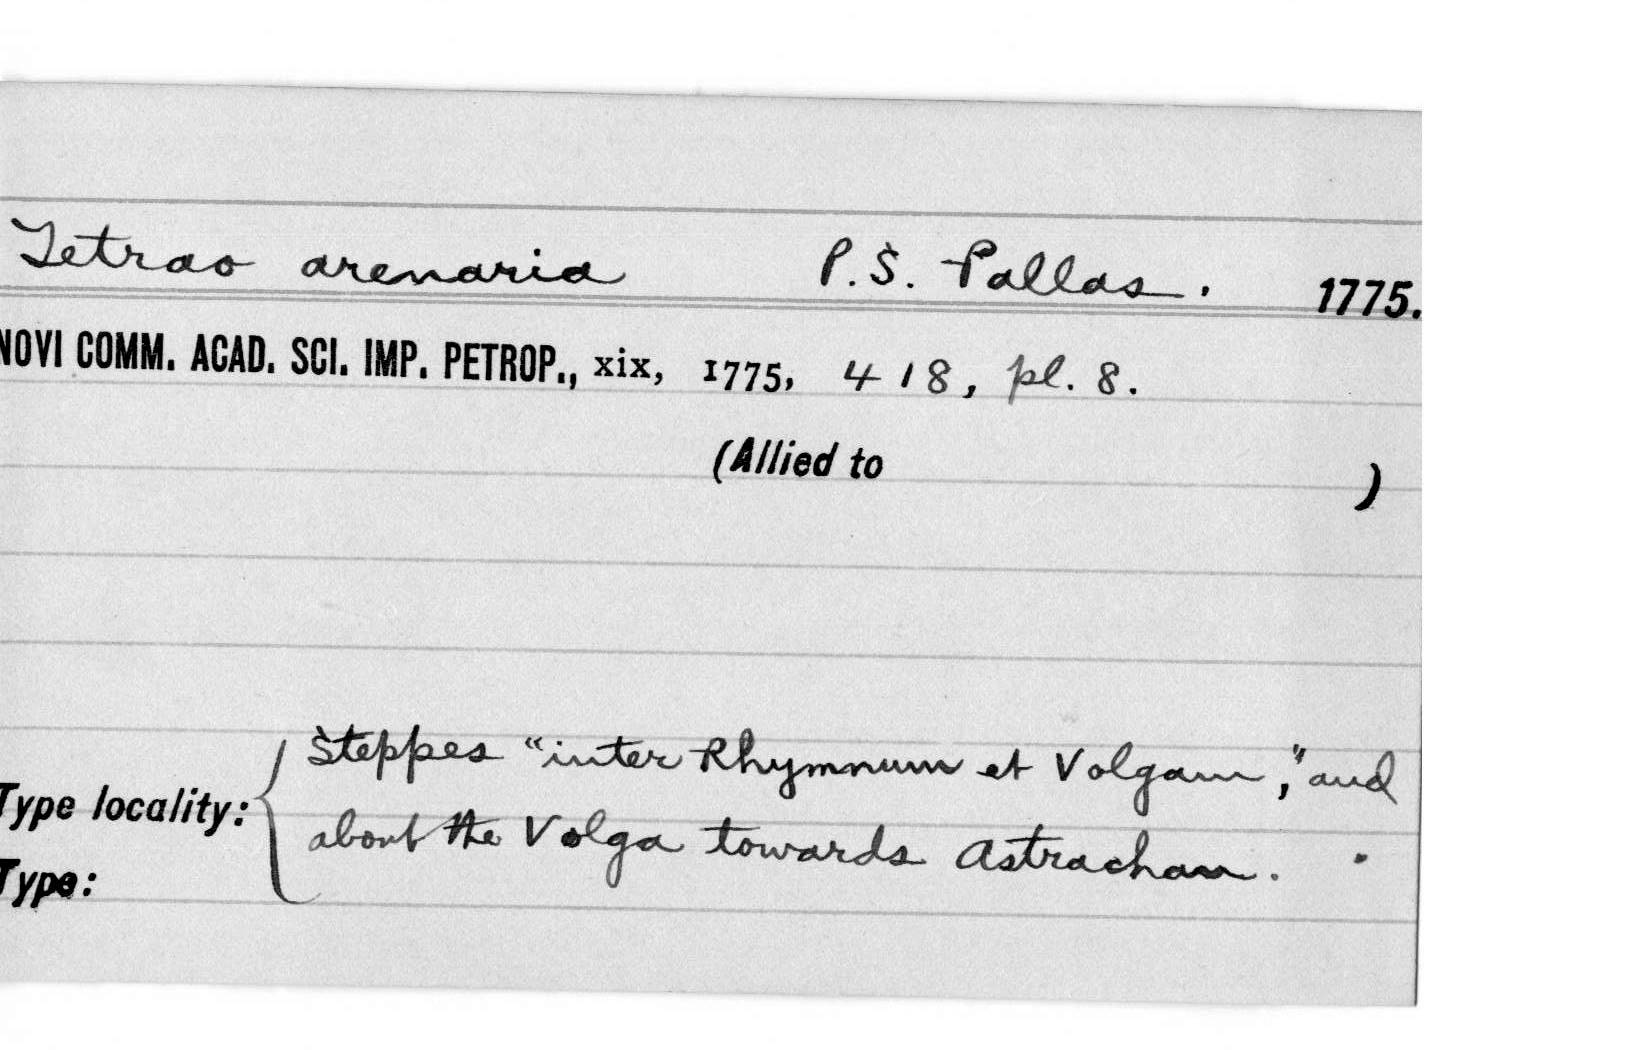 Tetrao arenaria P.S. Pallas. 1775.
NOVI COMM. ACAD. SCI. IMP. PETROP., xix, 1775, 418, pl. 8.
(Allied to )
Steppes "inter Rhymnum et Volgam," and
Type locality: about the Volga towards Astrachan.
Type: